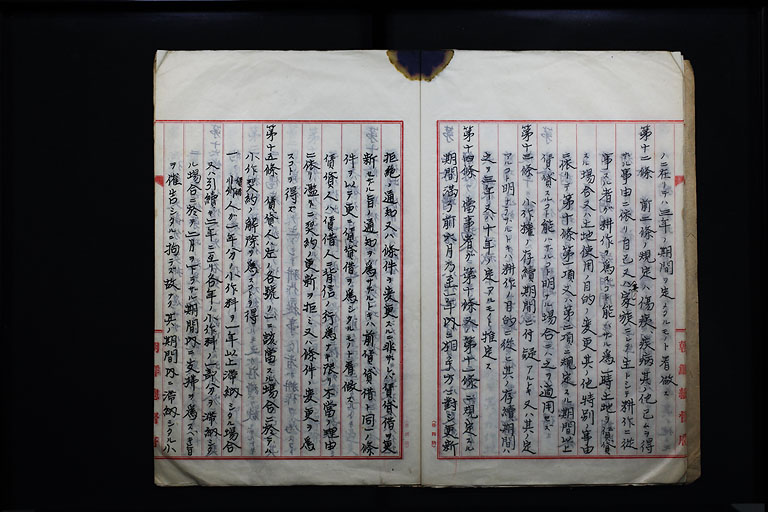 ノニ在リテハ三年ノ期間ヲ定メタルモノト看做ス
第十二條 前二條ノ規定ハ傷痍疾病其ノ他已ムヲ得
ザル事由ニ依リ自己又ハ家族ヲ主トシテ耕作ニ從
事スル者ガ耕作ヲ爲スコト能ハザル爲一時土地ヲ賃貸
スル場合又ハ土地使用目的ノ變更其ノ他特別ノ事由
ニ依リテ第十條第一項又ハ第二項ニ規定スル期間以上
賃貸スルコト能ハザルコト明ナル場合ニハ之ヲ適用セズ
第十三條 小作權ノ存續期間ニ付疑アルトキ又ハ其ノ定
アルコト明ナラザルトキハ耕作ノ目的ニ從ヒ其ノ存續期間ハ
之ヲ三年又ハ十年ト定メタルモノト推定ス
第十四條 當事者ガ第十條又ハ第十一條ニ規定スル
期間滿了前六月乃至一年內ニ相手方ニ對シ更新
拒絕ノ通知又ハ條件ヲ變更スルニ非ザレバ賃貸借ヲ更
新セザル旨ノ通知ヲ爲サザルトキハ前賃貸借ト同一ノ條
件ヲ以テ更ニ賃貸借ヲ爲シタルモノト看做ス
賃貸人ハ賃借人ニ背信ノ行爲ナキ限リ不當ノ理由
ニ依リ濫ニ契約ノ更新ヲ拒ミ又ハ條件ノ變更ヲ爲
スコトヲ得ズ
第十五條 賃貸人ハ左ノ各號ノ一ニ該當スル場合ニ於テハ
小作契約ノ解除ヲ爲スコトヲ得
一 賃借人ガ一年分ノ小作料ヲ一年以上滯納シタル場合
又ハ引續キ二年ニ至リ各年ノ小作料ノ一部分ヲ滯納シタ
ル場合ニ於テ二月ヲ下ラザル期間內ニ支拂ヲ爲スベキ旨
ヲ催告シタルニ拘ラズ故ナク其ノ期間內ニ滯納シタル小